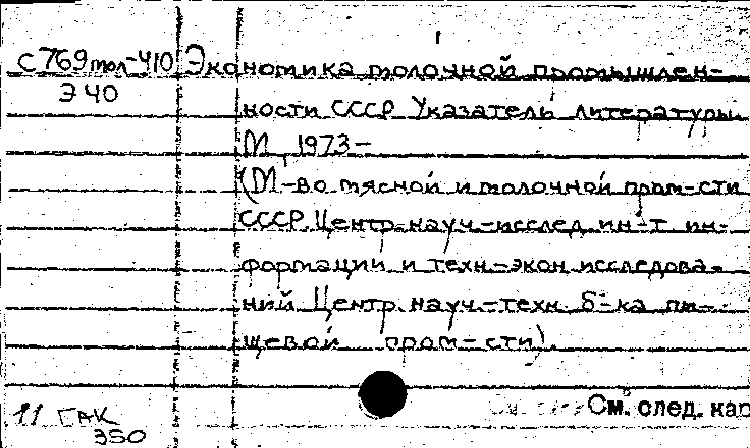 С769мол-410 Экономика молочной промышлен-
Э40
ности СССР Указатель литературы.
М, 1973-
(М-во мясной и молочной пром-сти
СССР. Центр. науч.-исслед. ин-т ин-
формации и техн.-экон. исследова-
ний Центр. науч.-техн. б-ка пи-
щевой пром-сти).
См. след. кар
11 ГАК
350